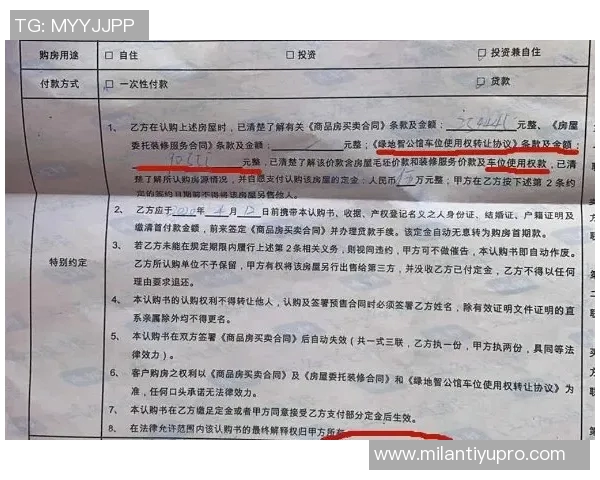 TG: MYYJJPP
购房用途 □ 自住 □ 投资 □ 投资兼自住
付款方式 □ 一次性付款 □ 贷款
特别约定
1、 乙方在认购上述房屋时，已清楚了解有关《商品房买卖合同》条款及金额： 元整、《房屋
委托装修服务合同》条款及金额： 元整、《绿地智公馆车位使用权转让协议》条款及金额：
元整，已清楚了解该价款含房屋毛坯价款和装修服务价款及车位使用权款，已清
楚了解所认购房源情况，并自愿支付认购该房屋的定金：人民币 万元整；甲方在乙方按下述第 2 条约
定的签约日期前不得将该房屋另售他人。
2、 乙方应于2020年 4 月 12 日前携带本认购书、收据、产权登记名义之人身份证、结婚证、户籍证明及
缴清首付款金额，前来签定《商品房买卖合同》并办理贷款手续。该定金自动无息转为购房首期款。
3、 若乙方未能在规定期限内履行上述第 2 条相关义务，则视同违约，甲方可不做催告，本认购书即自动作废。
乙方所认购单位不予保留，甲方有权将该房屋另行出售给第三方，并没收乙方已付定金，乙方不得以任何
理由要求退还。
4、 本认购书的认购权利不得转让他人，认购及签署预售合同时必须签署乙方姓名，除有效证明文件证明的直
系亲属除外均不得更名。
5、 本认购书在双方签署《商品房买卖合同》后自动失效（共一式三联，乙方执一份，甲方执两份，具同等法
律效力）。
6、 客户购房之权利以《商品房买卖合同》及《房屋委托装修合同》和《绿地智公馆车位使用权转让协议》为
准，任何口头承诺无法律效力。
7、 本认购书在乙方缴足定金或者甲方同意接受乙方支付部分定金后生效。
8、 在法律允许范围内该认购书的最终解释权归甲方所有
www.milantiyupro.com